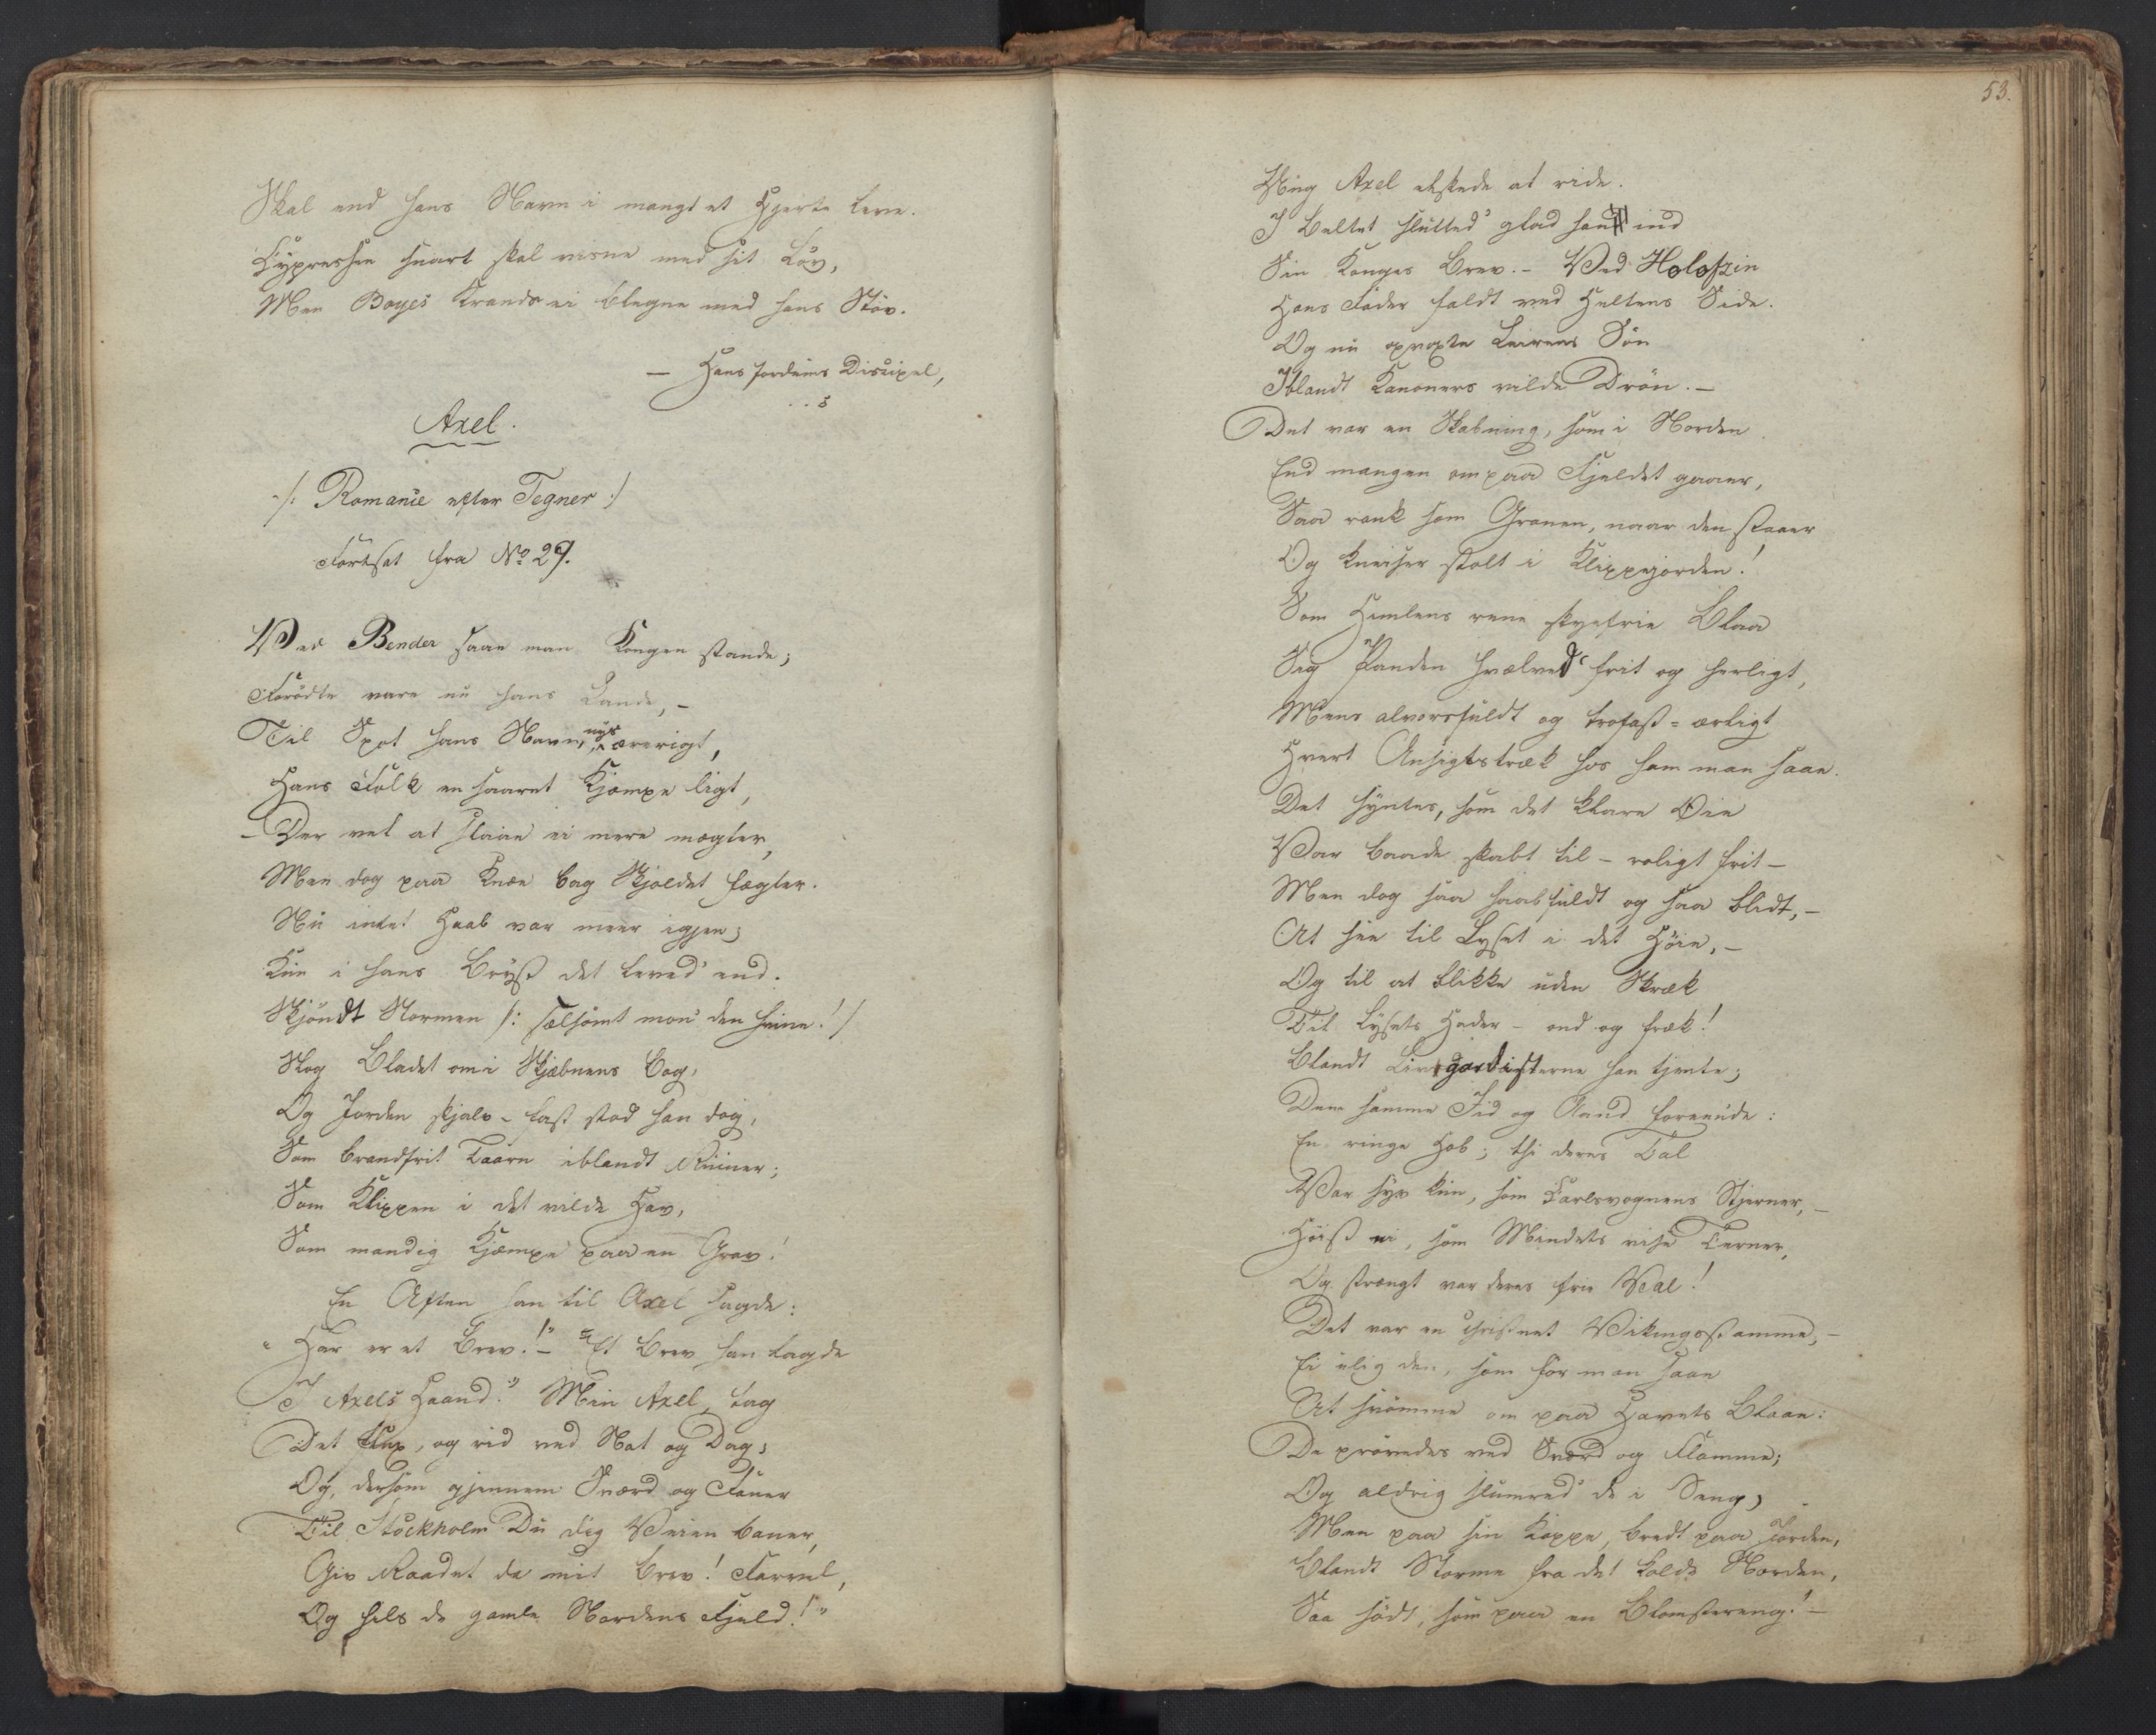 Skal end hans Navn i mangt et Hjerte leve.
Cypressen snart skal visne med sit Löv,
Men Boyes Krands ei blegne med hans Stöv.
— Hans fordums Discipel,
. . s
Axel.
/: Romance efter Tegner :/
Fortsat fra No 29.
Ved Bender saae man Kongen stande;
Forödte vare nu hans Lande, –
Til Spot hans Navn, nys ærerigt,
Hans Folk en saaret Kjæmpe ligt,
– Der vel at staae ei mere mægter,
Men dog paa Knæ bag Skjoldet fægter.
Nu intet Haab var meer igjen;
Kun i hans Bryst det leved' end.
Skjöndt Stormen /: sælsomt mon' den hvine! /
Slog Bladet om i Skjæbnens Bog,
Og Jorden skjalv – fast stod han dog,
Som brandfrit Taarn iblandt Ruiner;
Som Klippen i det vilde Hav,
Som mandig Kjæmpe paa en Grav!
En Aften han til Axel sagde:
"Her er et Brev!" – Et Brev han lagde
I Axels Haand. " Min Axel, tag
Det flux, og rid ved Nat og Dag;
Og, dersom gjennem Sværd og Faner
Til Stockholm Du dig Veien baner,
Giv Raadet da mit Brev! Farvel,
Og hils de gamle Nordens Fjeld!"
53.
Ung Axel elskede at ride.
I Beltet slutted' glad han ind
Sin Konges Brev. – Ved Holofzin
Hans Fader faldt ved Heltens Side.
Og nu opvoxte Leirens Sön
Iblandt Kanoners vilde Drön. –
Det var en Skabning, som i Norden
End mangen om paa Fjeldet gaaer,
Saa rank som Granen, naar den staaer
Og kneiser stolt i Klippejorden!
Som Himlens rene skyefrie Blaa
Sig Panden hvælved' frit og herligt,
Mens alvorsfuldt og trofast-ærligt
Hvert Ansigtstræk hos ham man saae.
Det syntes, som det klare Öie
Var baade skabt til – roligt frit –
Men dog saa haabfuldt og saa blidt, –
At see til Lyset i det Höie, –
Og til at blikke uden Skræk
Til Lysets Hader – ond og fræk!
Blandt Livgardisterne han tjente;
Dem samme Id og Aand foreende:
En ringe Hob; thi deres Tal
Var syv kun, som Carlsvognens Stjerner, –
Höist ni, som Mindets vise Terner,
Og strængt var deres frie Val!
Det var en christnet Vikingsstamme, –
Ei ulig den, som för man saae
At svömme om paa Havets Blaae:
De prövedes ved Sværd og Flamme;
Og aldrig slumred' de i Seng,
Men paa sin Kappe, bredt paa Jorden,
Blandt Storme fra det kolde Norden,
Saa södt, som paa en Blomstereng! –